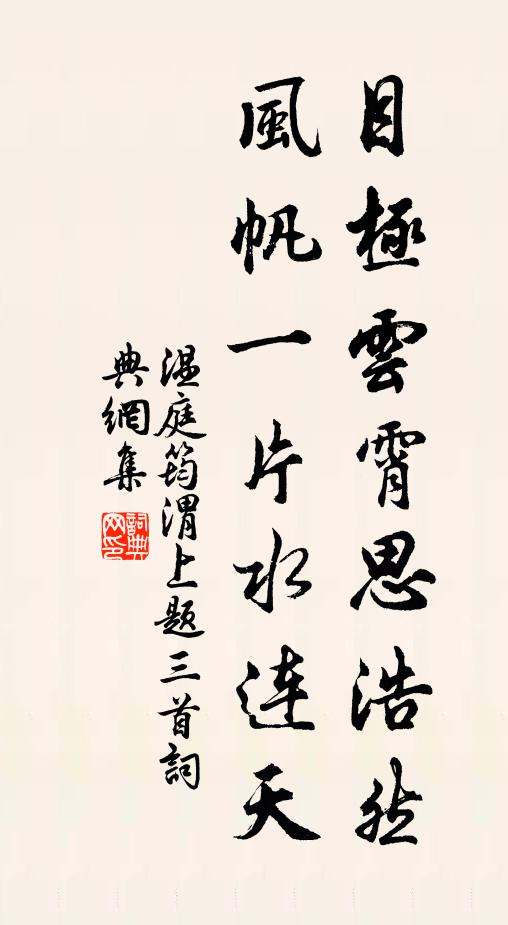 目極雲霄思浩然
風帆一片水連天
温庭筠渭上题三首詞
典網集
詞典
网印